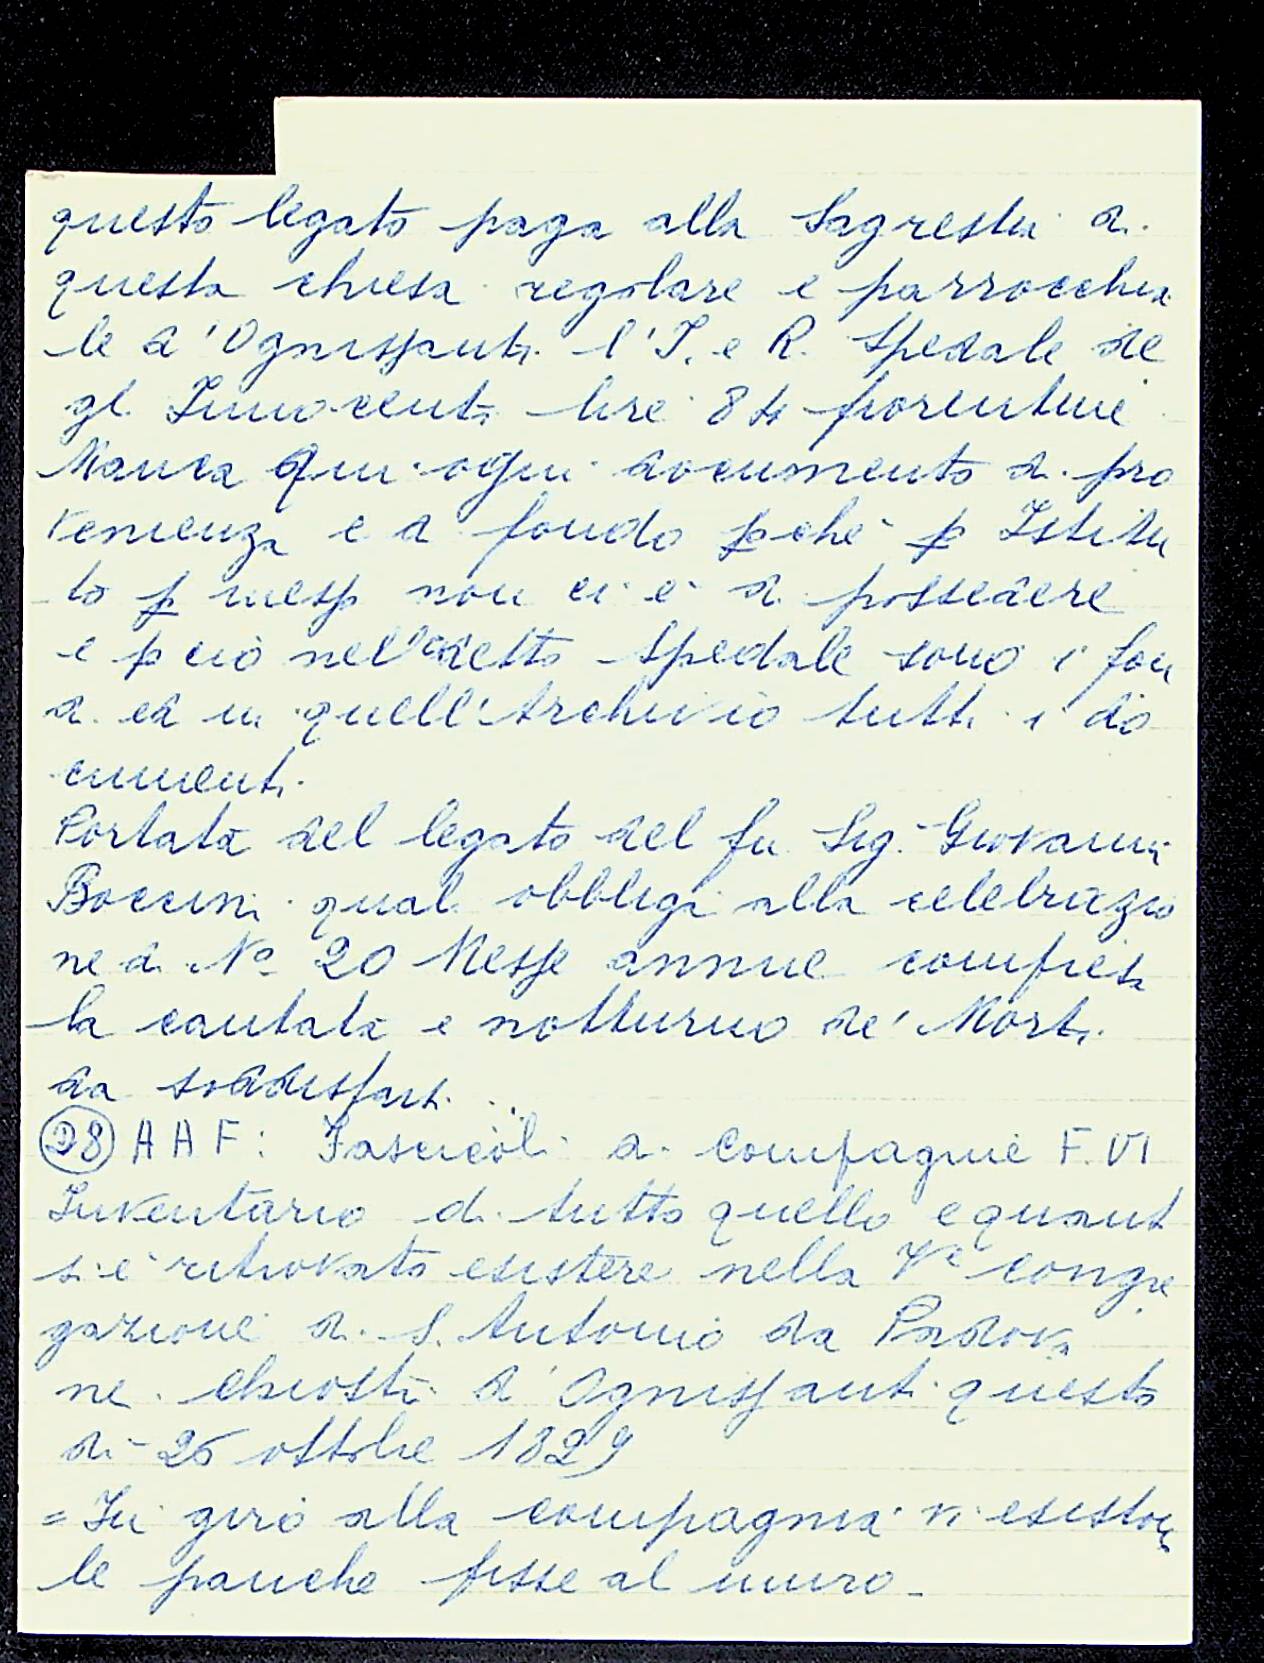 questo legato paga alla Sagrestia di
questa chiesa regolare e parrocchia
le d'Ognissanti l'I. e R. Spedale de
gl. Innocenti lire 84 fiorentine
Manca qui ogni documento di pro
venienza e di fondo pchè p Istitu
to p messe non ci è di possedere
e p ciò nel detto Spedale sono i fon
di ed in quell'Archivio tutti i do
cumenti.
Portata del legato del fu Sig. Giovanni
Boccini quali obblighi alla celebrazio
ne di No 20 Messe annue compresa
la cantata e notturno de' Morti
da soddisfarsi.
D8 A A F: Fascicoli di Compagnie F. VI
Inventario di tutto quello e quant
si è ritrovato esistere nella Ve congre
gazione di S. Antonio da Padova
ne Chiostri d'Ognissanti questo
dì 26 ottobre 1829
= In giro alla compagnia vi esiston
le panche fisse al muro -